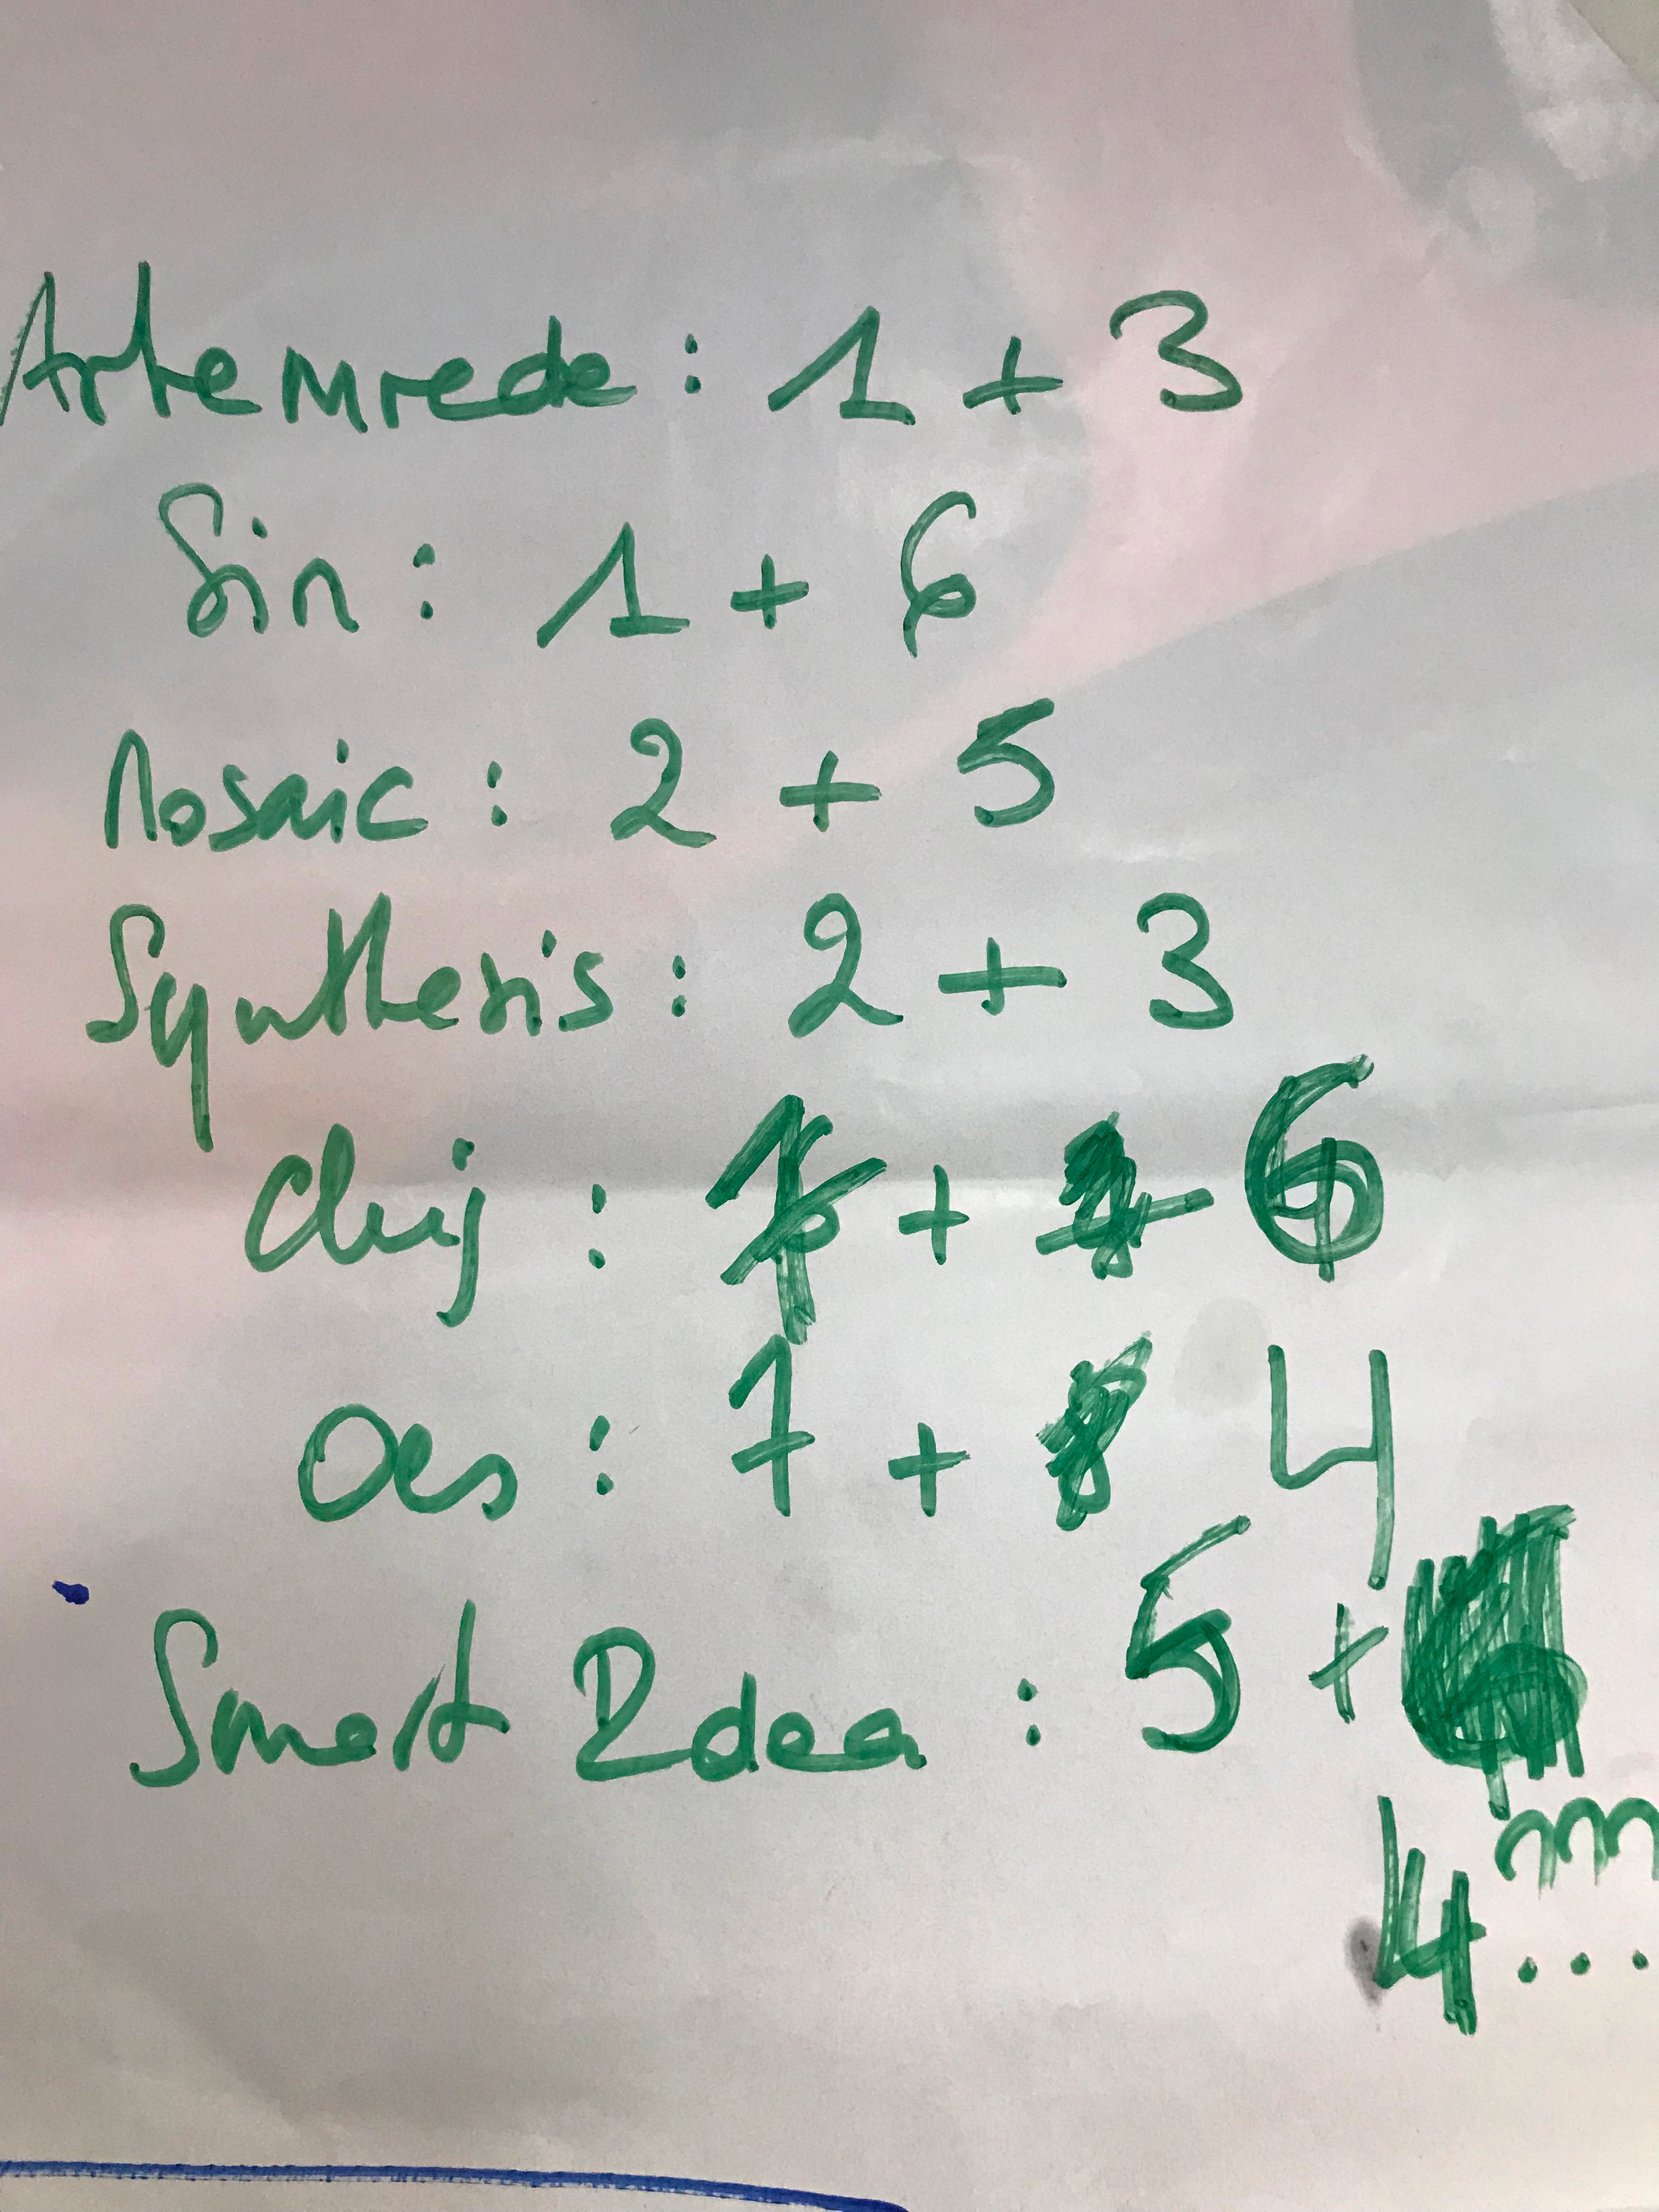 Artemrede : 1 + 3
Sin : 1 + 6
Mosaic : 2 + 5
Synthesis : 2 + 3
Cluj : 7 + 6
Oes : 7 + 4
Smart Idea : 5 +
4 ...